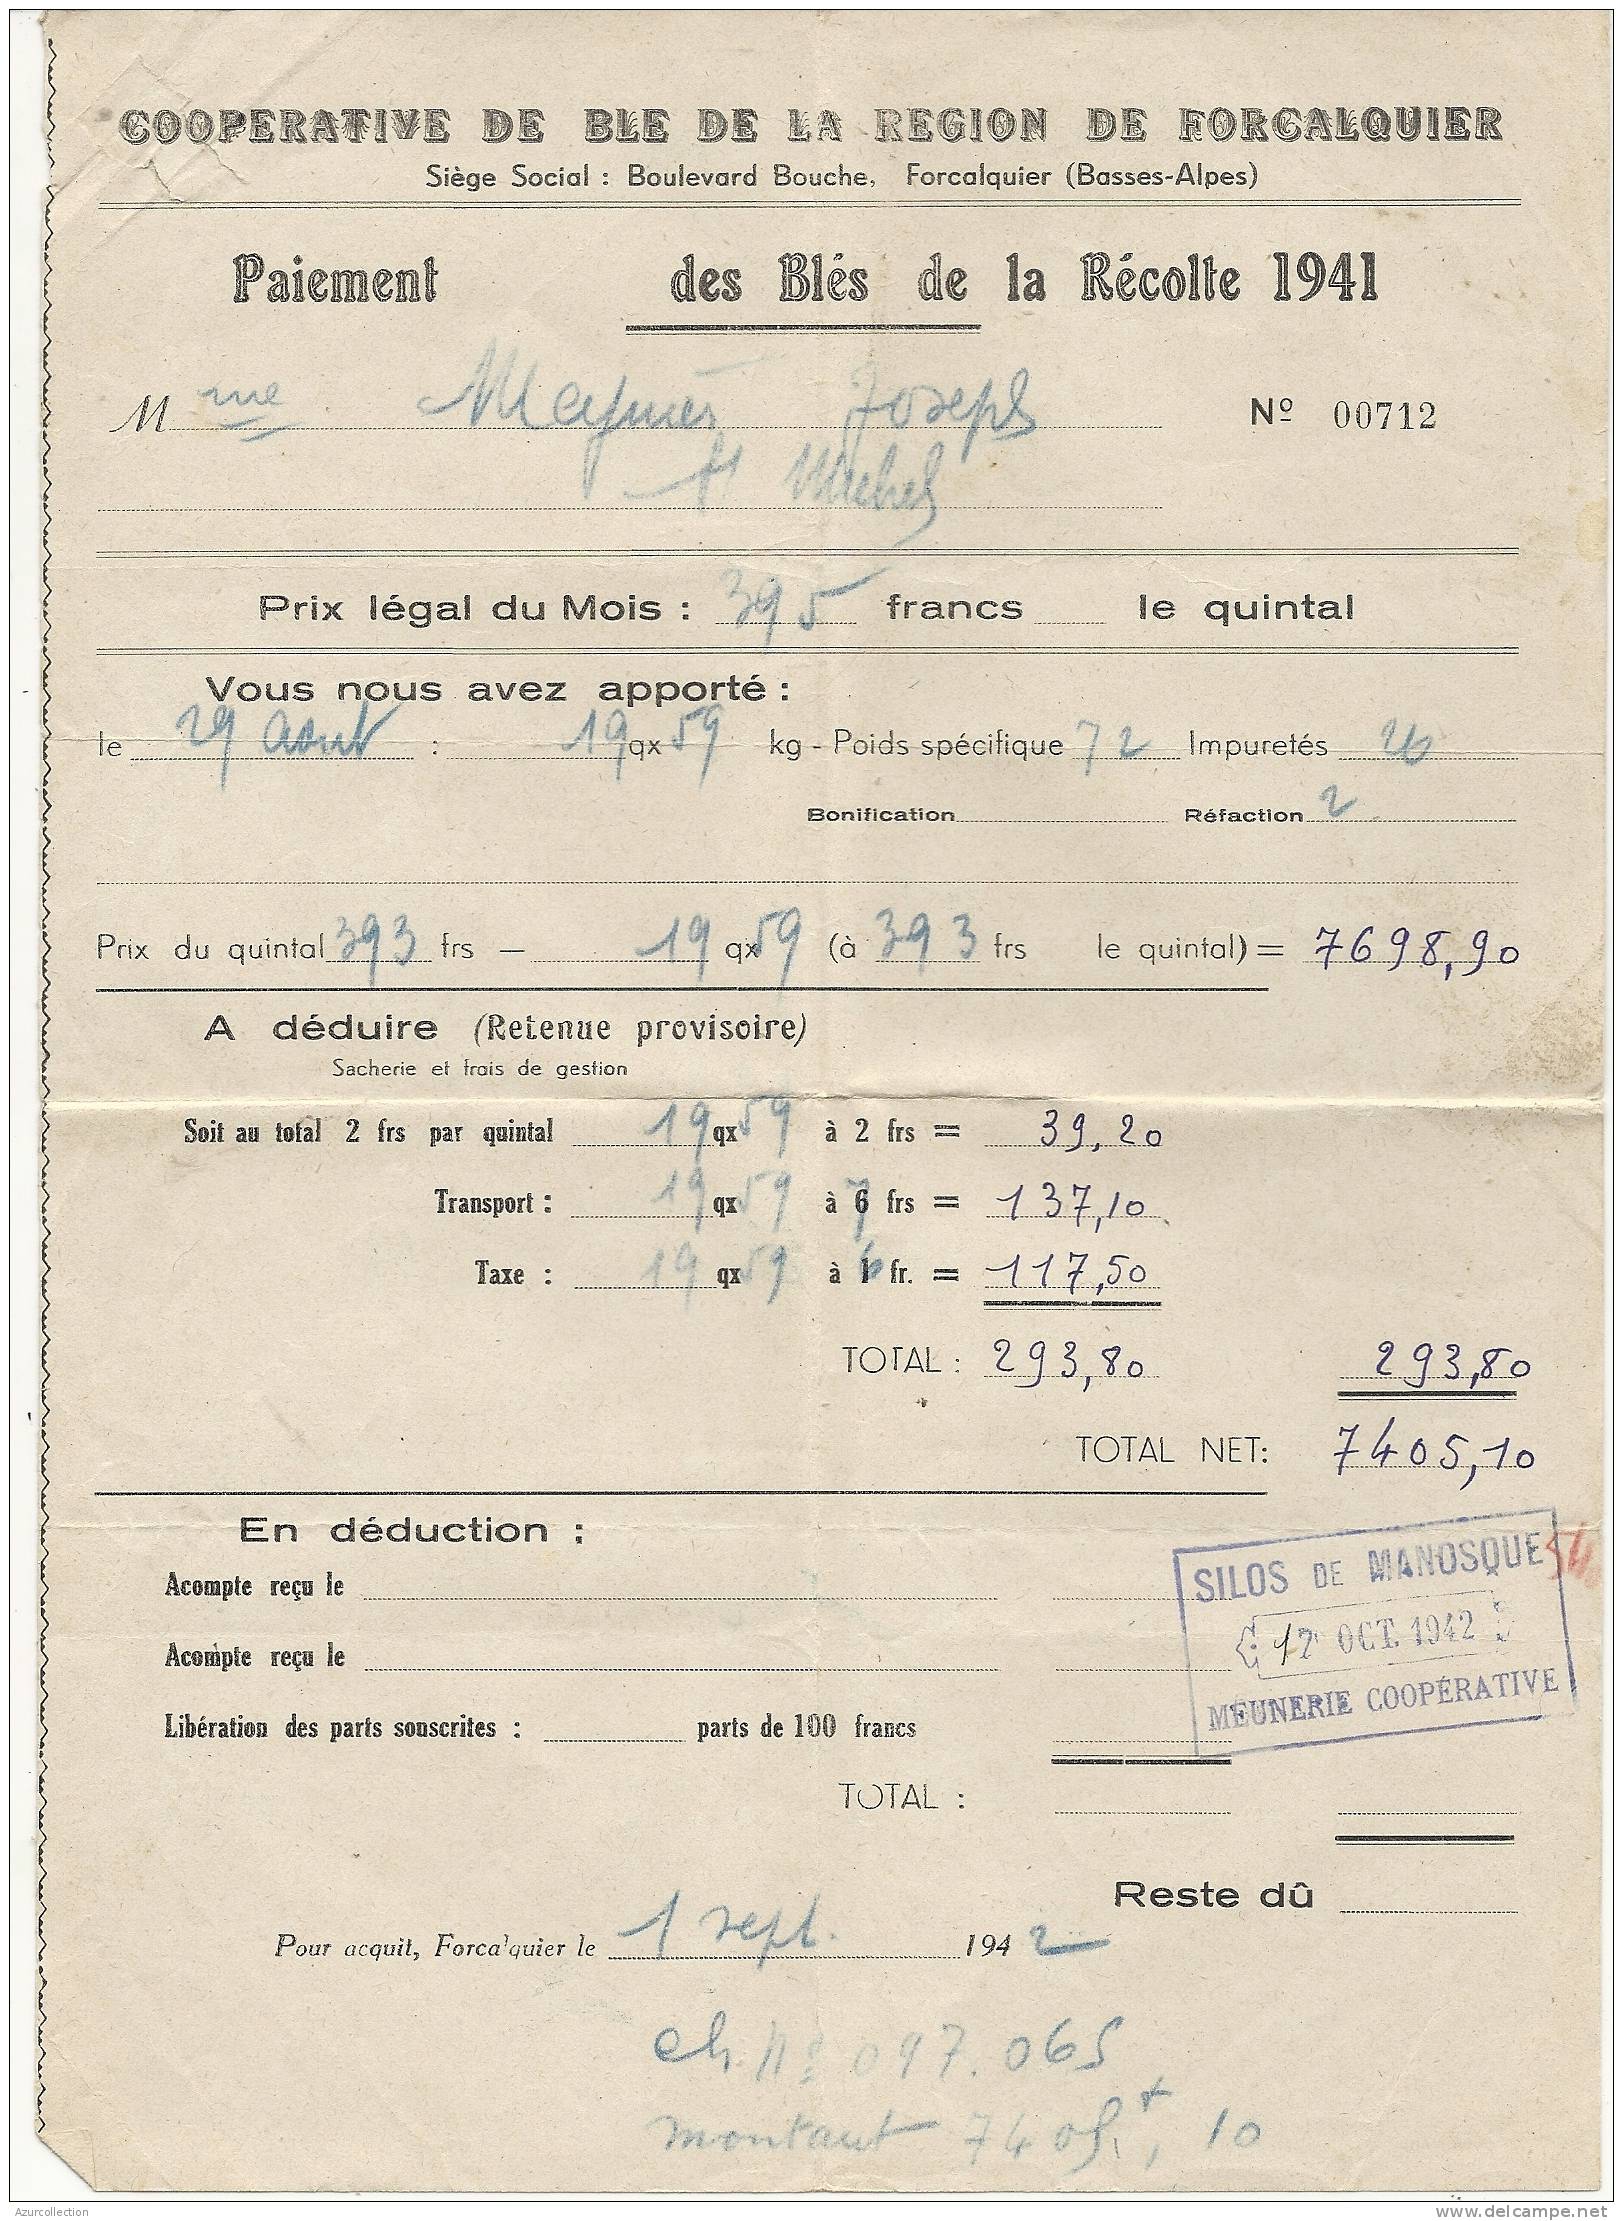 COOPERATIVE DE BLE DE LA REGION DE FORCALQUIER
Siège Social : Boulevard Bouche, Forcalquier (Basses-Alpes)
Paiement des Blés de la Récolte 1941
Mme Meynier Joseph Nº 00712
St Michel
Prix légal du Mois : 395 francs le quintal
Vous nous avez apporté :
le 29 aout : 19 qx 59 kg - Poids spécifique 72 Impuretés
Bonification Réfaction 2
Prix du quintal 393 frs - 19 qx 59 (à 393 frs le quintal) = 7698,90
A déduire (Retenue provisoire)
Sacherie et frais de gestion
Soit au total 2 frs par quintal 19 qx 59 à 2 frs = 39,20
Transport : 19 qx 59 à 7 frs = 137,10
Taxe : 19 qx 59 à 6 fr. = 117,50
TOTAL : 293,80 293,80
TOTAL NET: 7405,10
En déduction :
Acompte reçu le
Acompte reçu le
Libération des parts souscrites : parts de 100 francs
SILOS DE MANOSQUE
17 OCT. 1942
MEUNERIE COOPÉRATIVE
TOTAL :
Reste dû
Pour acquit, Forcalquier le 1 sept. 1942
ch. Nº 097.065
montant 7405f,10
Azurcollection
www.delcampe.net